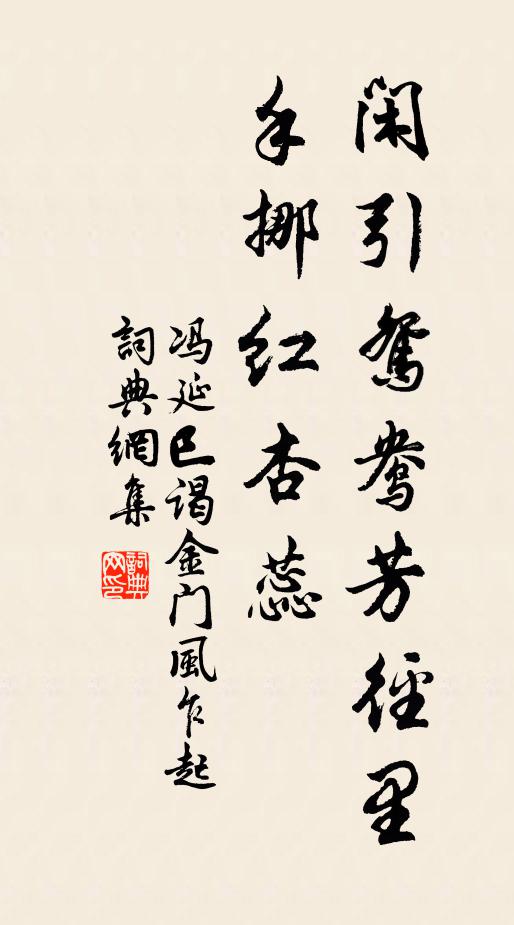 闲引鸳鸯芳径里
手挪红杏蕊
冯延巳谒金门风乍起
词典網集
詞典
网印